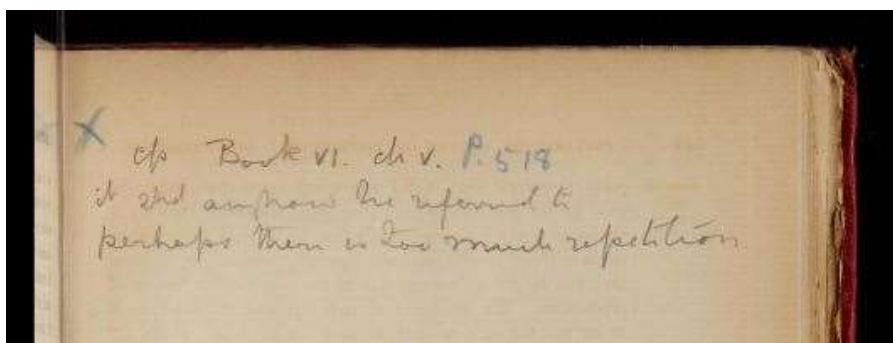 X
cp Book VI. ch V. P. 518
it shd anyhow be referred to
perhaps there is too much repetition